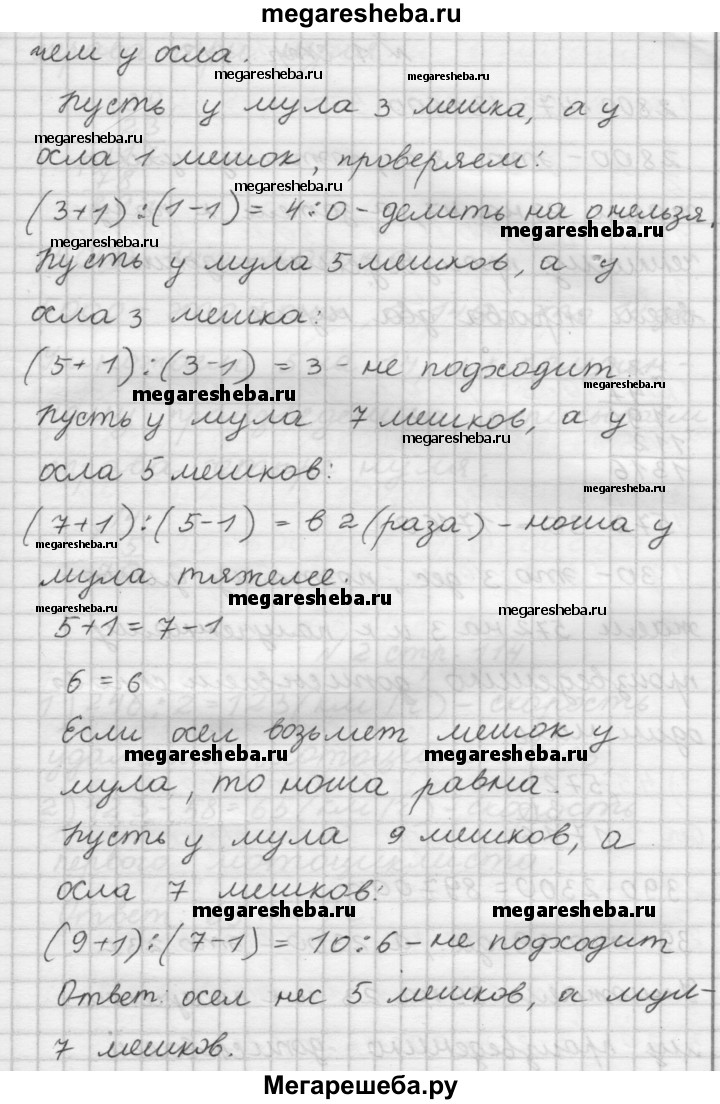 megaresheba.ru
чем у осла.
megaresheba.ru megaresheba.ru
Пусть у мула 3 мешка, а у
megaresheba.ru
осла 1 мешок, проверяем:
megaresheba.ru
(3+1):(1-1)= 4:0 - делить на 0 нельзя.
megaresheba.ru
Пусть у мула 5 мешков, а у
осла 3 мешка:
(5+1):(3-1) = 3 - не подходит.
megaresheba.ru
megaresheba.ru
Пусть у мула 7 мешков, а у
megaresheba.ru
осла 5 мешков:
megaresheba.ru
(7+1):(5-1) = в 2 (раза) - ноша у
megaresheba.ru
мула тяжелее.
megaresheba.ru
megaresheba.ru megaresheba.ru
5+1=7-1
6=6
Если осел возьмет мешок у
megaresheba.ru megaresheba.ru
мула, то ноша равна.
Пусть у мула 9 мешков, а
осла 7 мешков:
megaresheba.ru megaresheba.ru
(9+1):(7-1)= 10:6 - не подходит
Ответ: осел нес 5 мешков, а мул-
7 мешков.
Мегарешеба.ру